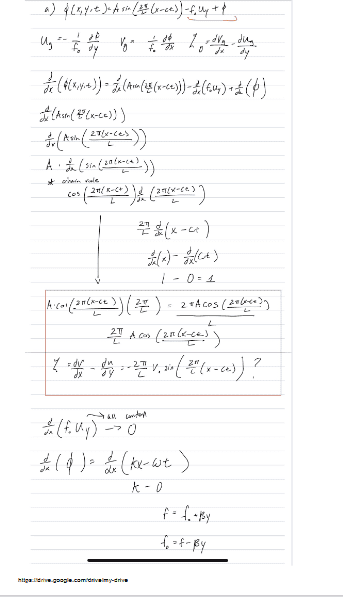 a) ϕ(x,y,t) = A sin(2π/L (x-ct)) - f₀ u y + ϕ
u_g = - 1/f₀ dϕ/dy   v_g = 1/f₀ dϕ/dx   ζ_g = dv_g/dx - du_g/dy
d/dx (ϕ(x,y,t)) = d/dx (A sin(2π/L (x-ct))) - d/dx (f₀ u y) + d/dx (ϕ)
d/dx (A sin(2π/L (x-ct)))
d/dx (A sin(2π(x-ct)/L))
A · d/dx (sin(2π(x-ct)/L))
* chain rule
cos(2π(x-ct)/L) d/dx (2π(x-ct)/L)
2π/L d/dx (x-ct)
d/dx (x) - d/dx (ct)
1 - 0 = 1
A·cos(2π(x-ct)/L) (2π/L) = 2πA cos(2π(x-ct)/L)/L
2π/L A cos(2π(x-ct)/L)
ζ = dv/dx - du/dy = -2π/L V₀ sin(2π/L (x-ct)) ?
→ all
d/dx (f₀ u y) → 0
d/dx (ϕ) = d/dx (kx-ωt)
k - 0
f = f₀ + βy
f₀ = f - βy
https://drive.google.com/drive/my-drive